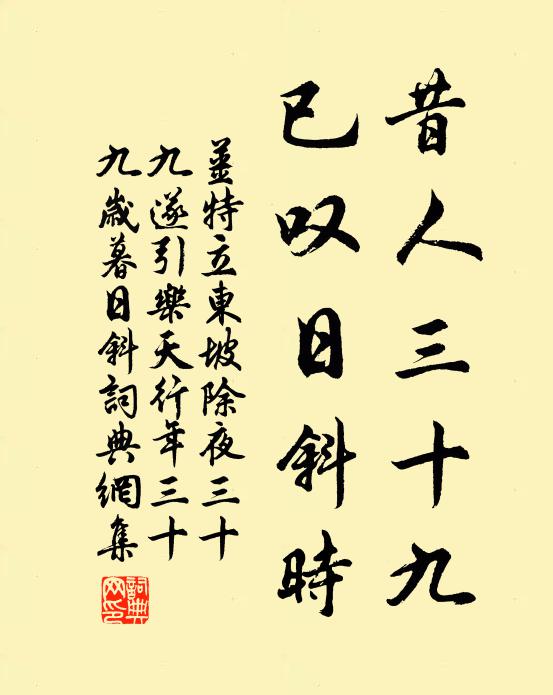 昔人三十九
已叹日斜時
薑特立東坡除夜三十
九遂引樂天行年三十
九歲暮日斜詞典網集
詞典网印